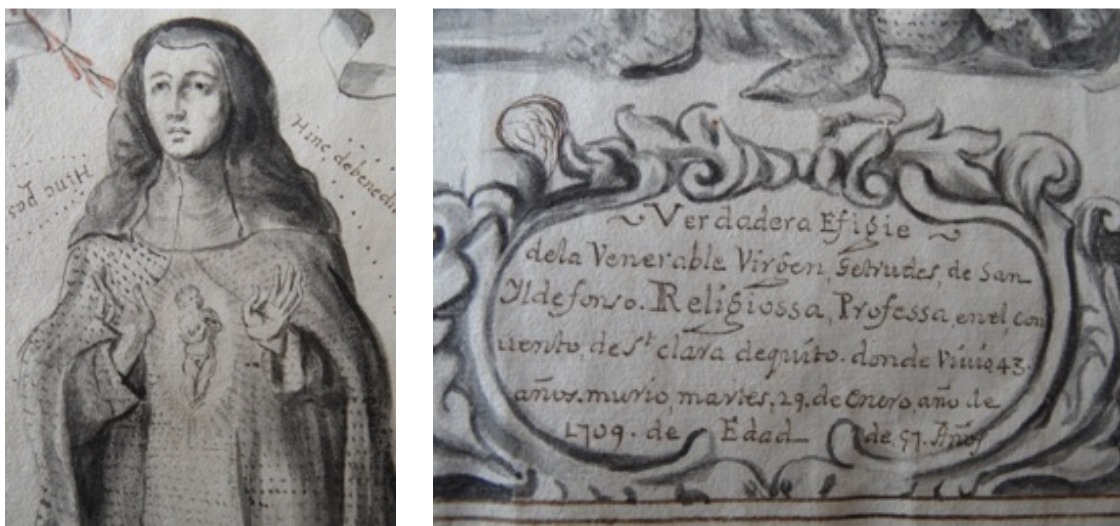 Hinc pas
Hinc debenedi
~ Verdadera Efigie ~
dela Venerable Virgen, Getrudes, de San
Yldefonso. Religiossa, Professa, en el, con
uento, de Sta clara dequito. donde Viuio 43.
años. murio, martes, 29. de Enero, año de
1709. de Edad de 57. Años